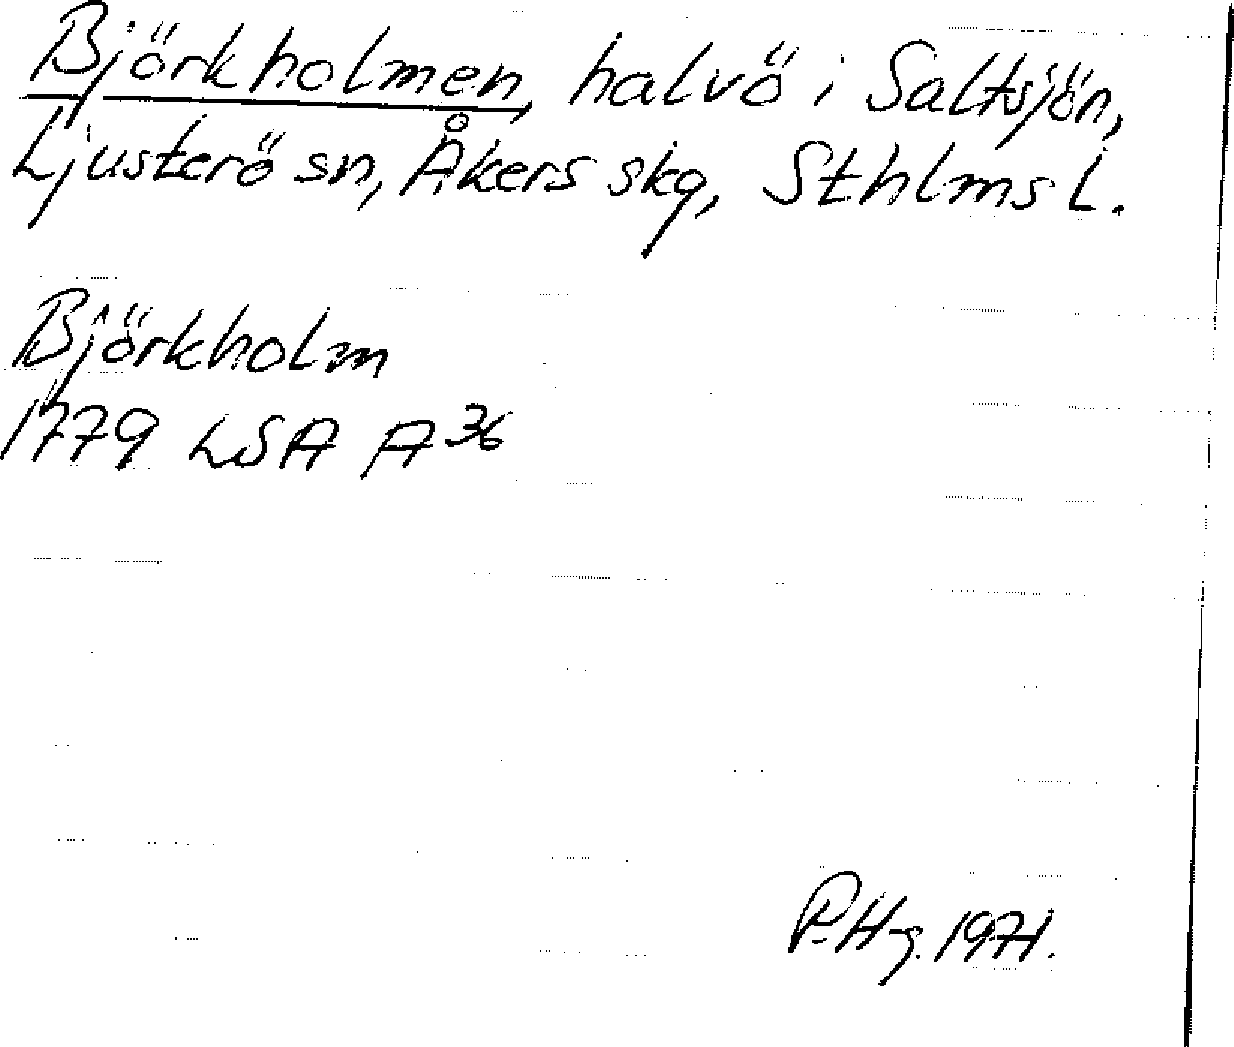 Björkholmen, halvö i Saltsjön,
Ljusterö sn, Åkers skg, Sthlms L.
Björkholm
1779 LSA A 36
P. Hg. 1971.